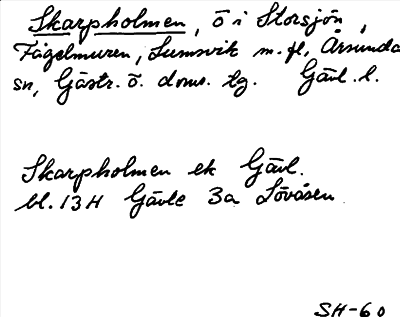 Skarpholmen, ö i Storsjön,
Fågelmuren, Sumsvik m. fl, Årsunda
sn, Gästr. ö. doms. tg. Gävl. l.
Skarpholmen ek Gävl.
bl. 13H Gävle 3a Lövåsen
SH-60